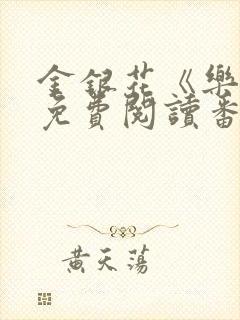 金銀花《樂
免費閱讀番
黃天蕩